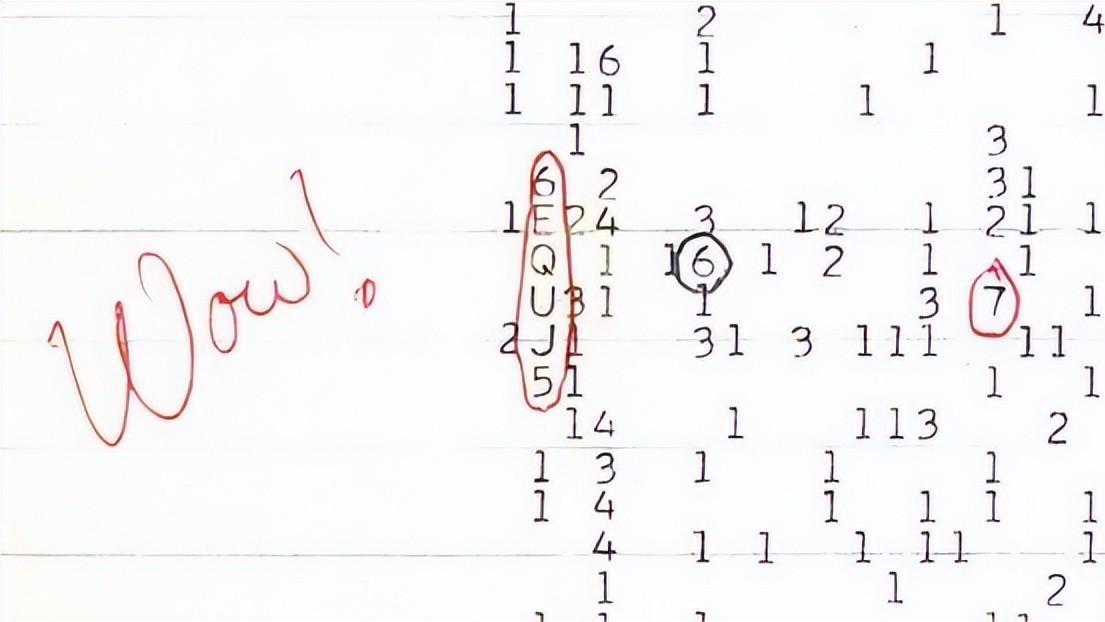 Wow!
1 2 1 4
1 1 6 1 1
1 1 1 1 1 1
1 3
6 2 3 1
1 E 2 4 3 1 2 1 2 1 1
Q 1 1 6 1 2 1 1
U 3 1 1 3 7 1
2 J 1 3 1 3 1 1 1 1 1
5 1 1 1
1 4 1 1 1 3 2
1 3 1 1 1
1 4 1 1 1 1
4 1 1 1 1 1 1
1 1 2